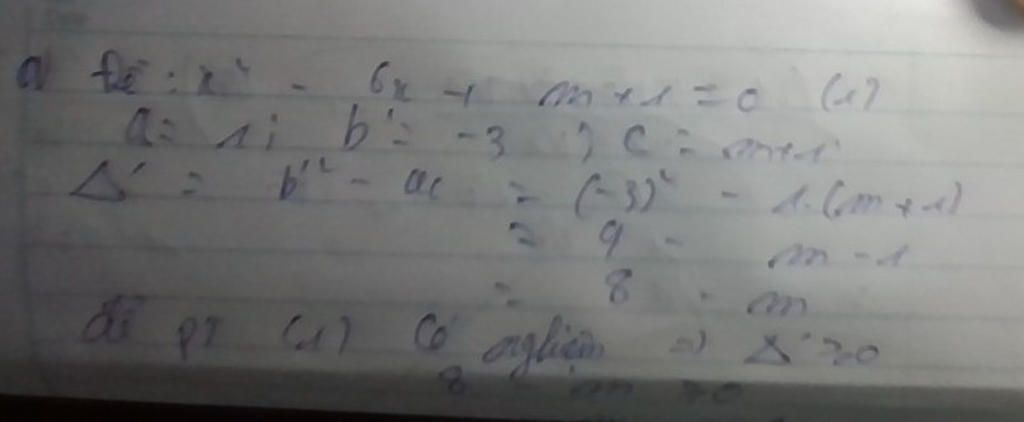 a) Đề : x² - 6x + m+1 = 0 (1)
a = 1 ; b' = -3 ; c = m+1
Δ' = b'² - ac = (-3)² - 1.(m+1)
= 9 - m - 1
= 8 - m
để pt (1) có nghiệm => Δ' ≥ 0
8 - m ≥ 0